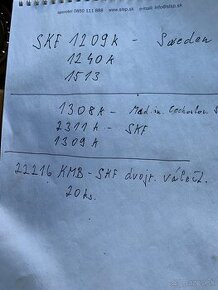 Spojár 0850 111 888 www.slsp.sk e-mail: info@slsp.sk
SKF 1209K - Sweden
1240K
1513
1308K - Mad. in. Čechoslov
2311K - SKF
1309K
22216 KMB - SKF dvojr. váleč.
20ks.